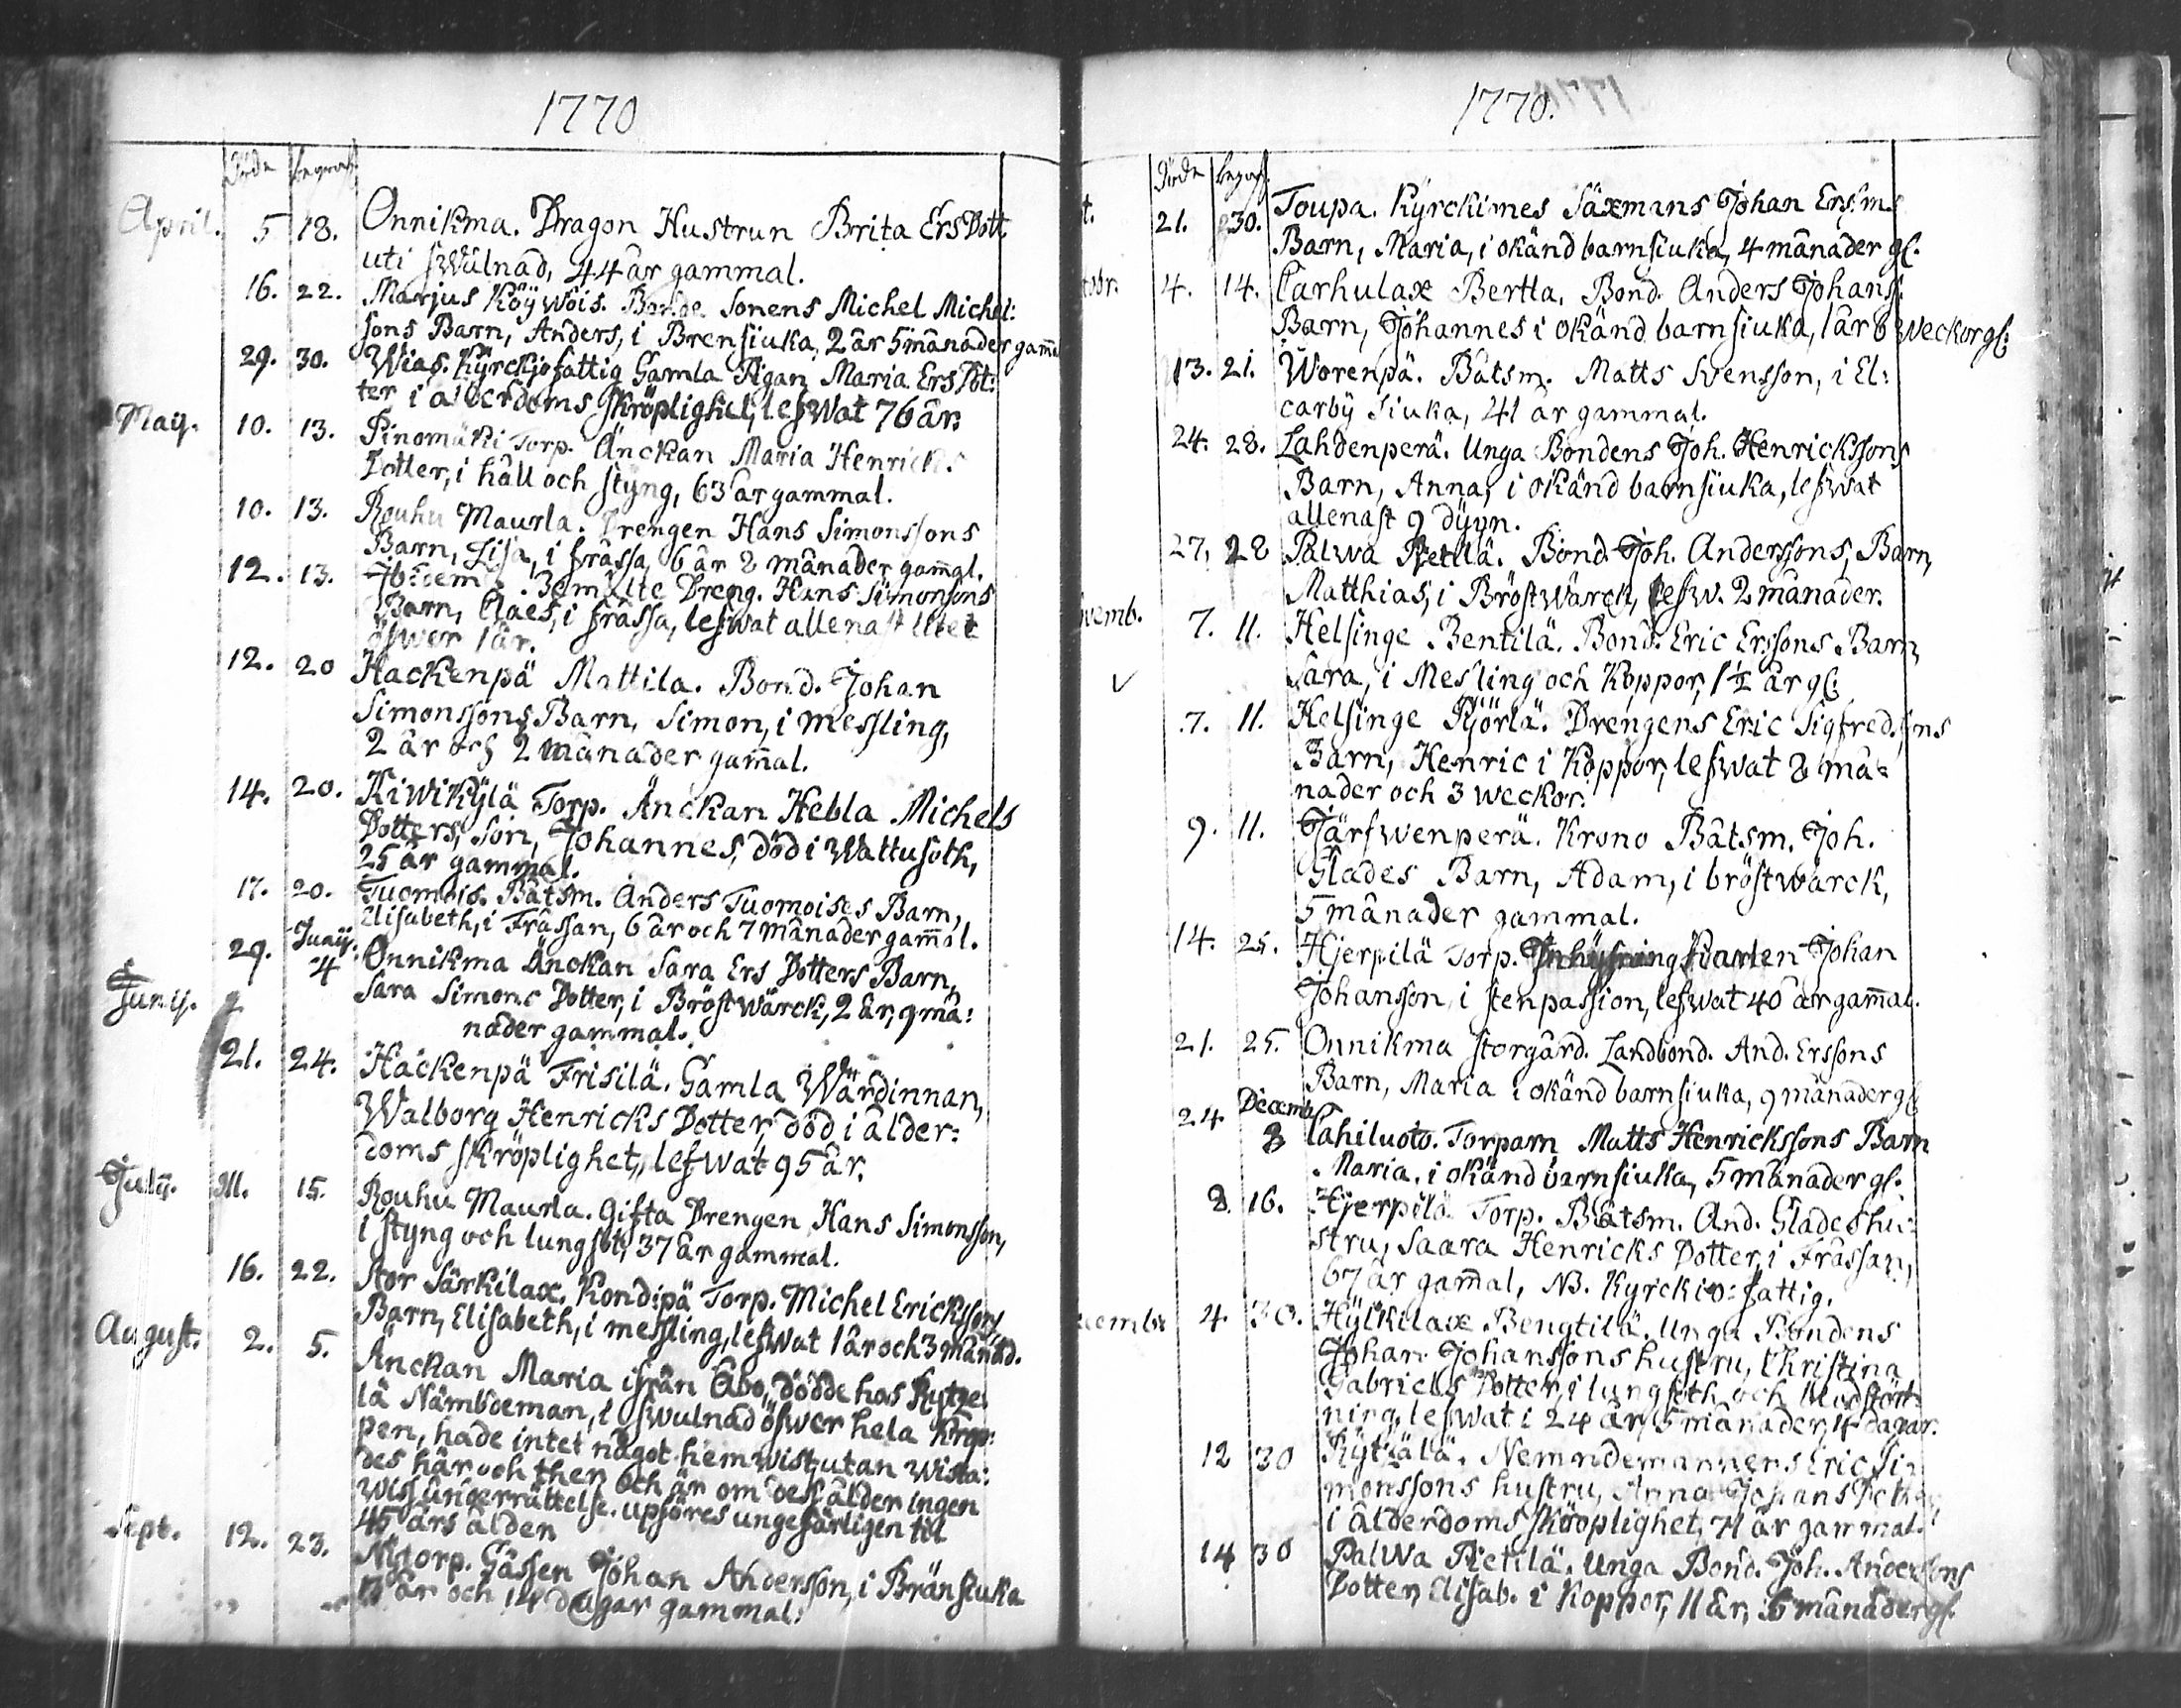 1770
Döde begrafn
April. 5 18. Onnikma. Dragon Hustrun Brita ErsDott.
uti swulnad, 44 år gammal.
16. 22. Marjus Köÿwois. Bonde Sonens Michel Michel:
sons Barn, Anders, i Brensiuka, 2 år 5 månader gam̄
29. 30. Wias. Kÿrckjofattig Gamla Pigan Maria Ers Dot:
ter i ålderdoms skröplighet, lefwat 76 år.
Maij. 10. 13. Pinomäki Torp. Änckan Maria Henricks
Dotter, i håll och stÿng, 63 år gammal.
10. 13. Rouhu Maurla. Drengen Hans Simonssons
Barn, Lisa, i frässa, 6 år 8 månader gam̄al.
12. 13. Ibidem. Bemälte Dreng. Hans Simonsons
Barn, Claes, i frässa, lefwat allenast litet
öfwer 1 år.
12. 20 Hackenpä Mattila. Bond. Johan
Simonssons Barn, Simon, i messling,
2 år och 2 månader gam̄al.
14. 20. Kiwikÿlä Torp. Änckan Hebla Michels
Dotters, Son, Johannes, död i Wattusoth,
25 år gammal.
17. 20. Tuomois. Båtsm. Anders Tuomoises Barn,
Elisabeth, i Frässan, 6 år och 7 månader gam̄al.
29. Junij. 4 Onnikma Änckan Sara Ers Dotters Barn,
Junij. Sara Simons Dotter, i Bröstwärck, 2 år, 9 må:
nader gammal.
21. 24. Hackenpä Frisilä. Gamla Wärdinnan,
Walborg Henricks Dotter, död i ålder:
doms skröplighet, lefwat 95 år.
Julij. 11. 15. Rouhu Maurla. Gifta Drengen Hans Simonsson,
i stÿng och lungsot, 37 år gammal.
16. 22. Stor Särkilax. Kondipä Torp. Michel Ericksons
Barn, Elisabeth, i messling, lefwat 1 år och 3 månad.
August. 2. 5. Änckan Maria ifrån Åbo, dödde hos
lä Nämbdeman, i swulnad öfwer hela krop:
pen, hade intet något hemwist, utan wista:
des här och ther och är om dess ålder ingen
wiss underrättelse. upföres ungefärligen til
45 års ålder
Sept. 12. 23. Nÿtorp. Gåssen Johan Andersson, i Bränsiuka
år och 14 dagar gammal.
1770.
Döde begraf.
t. 21. 30. Toupa. Kÿrckimes Säxmans Johan Ersm.
Barn, Maria, i okänd barnsiuka, 4 månader gl.
tobr. 4. 14. Carhulax Bertla. Bond. Anders Johans:
Barn, Johannes i okänd barnsiuka, 1 år 8 weckor gl:
13. 21. Worenpä. Båtsm. Matts Svensson, i El:
carbÿ siuka, 41 år gammal.
24. 28. Lahdenperä. Unga Bondens Joh. Henrickssons
Barn, Anna, i okänd barnsiuka, lefwat
allenast 9 dÿgn.
27. 28 Palwa Pietilä. Bond. Joh. Anderssons, Barn,
Matthias, i Bröstwärck, lefw. 2 månader.
vemb. 7. 11. Helsinge Bentilä. Bond. Eric Erssons Barn,
Sara, i Mesling och Koppor, 1½ år gl:
7. 11. Helsinge Pÿörlä. Drengens Eric Sigfredsons
Barn, Henric i Koppor, lefwat 8 må=
nader och 3 weckor.
9. 11. Järfwenperä. Krono Båtsm. Joh.
Glades Barn, Adam, i bröstwärck,
5 månader gammal.
14. 25. Hjerpilä Torp. Johan
Johansson, i stenpassion, lefwat 40 år gam̄al.
21. 25. Onnikma Storgård. Landbond. And. Erssons
Barn, Maria i okänd barnsiuka, 9 månader gl
24 Decemb. 8 Cahiluoto. Torparn Matts Henrickssons Barn
Maria, i okänd barnsiuka, 5 månader gl.
8. 16. Hjerpilä Torp. Båtsm. And. Glades hu:
stru, Saara Henricks Dotter, i Frässan,
67 år gam̄al, NB. Kyrckio: fattig.
cembr 4. 30. Hÿlkilax Bengtilä. Unga Bondens
Johan Johanssons hustru, Christina
Gabriels Dotter, i lungsoth och blodstört:
ning, lefwat i 24 år, 5 månader, 4 dagar.
12 30 Kÿtzälä. Nemndemannens Eric Si:
monssons hustru, Anna Johans Dotter,
i ålderdoms skröplighet, 71 år gammal.
14 30 Palwa Pietilä. Unga Bond. Joh. Anderssons
Dotter, Elisab. i Koppor, 11 år, 6 månader gl.